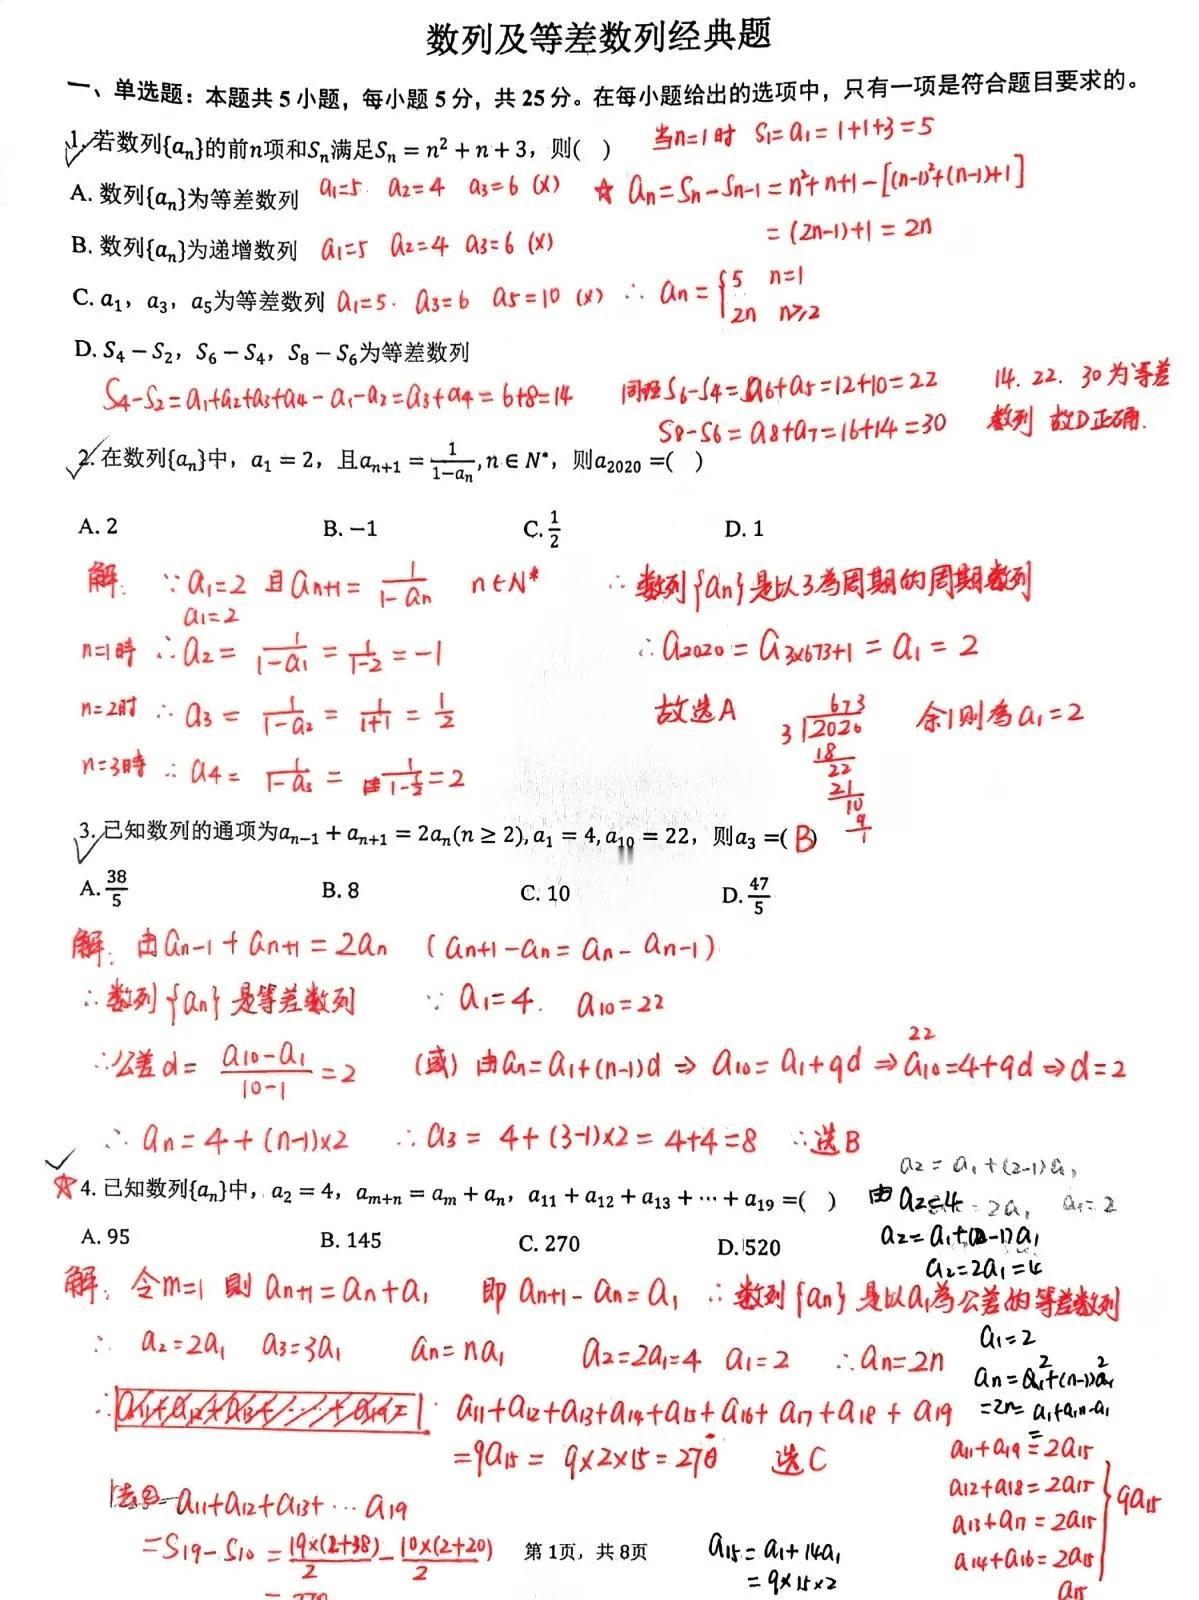 数列及等差数列经典题
一、单选题：本题共 5 小题，每小题 5 分，共 25 分。在每小题给出的选项中，只有一项是符合题目要求的。
1. 若数列{aₙ}的前n项和Sₙ满足Sₙ = n² + n + 3，则( ) 当n=1时 S₁=a₁=1+1+3=5
A. 数列{aₙ}为等差数列 a₁=5 a₂=4 a₃=6 (x) ☆ aₙ=Sₙ-Sₙ₋₁=n²+n+1-[(n-1)²+(n-1)+1]
=(2n-1)+1=2n
B. 数列{aₙ}为递增数列 a₁=5 a₂=4 a₃=6 (x)
C. a₁，a₃，a₅为等差数列 a₁=5. a₃=6 a₅=10 (x) ∴ aₙ={5 n=1
2n n≥2
D. S₄ − S₂，S₆ − S₄，S₈ − S₆为等差数列
S₄-S₂=a₁+a₂+a₃+a₄-a₁-a₂=a₃+a₄=6+8=14 同理S₆-S₄=a₆+a₅=12+10=22 14. 22. 30为等差
S₈-S₆=a₈+a₇=16+14=30 数列 故D正确.
2. 在数列{aₙ}中，a₁ = 2，且aₙ₊₁ = 1/(1−aₙ), n ∈ N*，则a₂₀₂₀ =( )
A. 2 B. −1 C. 1/2 D. 1
解: ∵a₁=2 且aₙ₊₁=1/(1-aₙ) n∈N* ∴数列{aₙ}是以3為周期的周期数列
a₁=2
n=1時 ∴a₂=1/(1-a₁)=1/(1-2)=-1 ∴a₂₀₂₀=a₃ₓ₆₇₃₊₁=a₁=2
n=2时 ∴a₃=1/(1-a₂)=1/(1+1)=1/2 故选A 余1则為a₁=2
673
3 2020
18
22
21
10
9
1
n=3時 ∴a₄=1/(1-a₃)=1/(1-1/2)=2
3. 已知数列的通项为aₙ₋₁ + aₙ₊₁ = 2aₙ(n ≥ 2), a₁ = 4, a₁₀ = 22，则a₃ =( B )
A. 38/5 B. 8 C. 10 D. 47/5
解: 由aₙ₋₁+aₙ₊₁=2aₙ (aₙ₊₁-aₙ=aₙ-aₙ₋₁)
∴数列{aₙ}是等差数列 ∵a₁=4. a₁₀=22
22
∴公差d=(a₁₀-a₁)/(10-1)=2 (或)由aₙ=a₁+(n-1)d⇒a₁₀=a₁+9d⇒a₁₀=4+9d⇒d=2
∴aₙ=4+(n-1)×2 ∴a₃=4+(3-1)×2=4+4=8 ∴选B
a₂=a₁+(2-1)a₁
☆ 4. 已知数列{aₙ}中，a₂ = 4，aₘ₊ₙ = aₘ + aₙ，a₁₁ + a₁₂ + a₁₃ + ⋯ + a₁₉ =( ) 由a₂=4 =2a₁ a₁=2
A. 95 B. 145 C. 270 D. 520 a₂=a₁+(2-1)a₁
a₂=2a₁=4
解: 令m=1 則aₙ₊₁=aₙ+a₁ 即aₙ₊₁-aₙ=a₁ ∴数列{aₙ}是以a₁為公差的等差数列
∴ a₂=2a₁ a₃=3a₁ aₙ=na₁ a₂=2a₁=4 a₁=2 ∴aₙ=2n a₁=2
∴ a₁₁+a₁₂+a₁₃+a₁₄+a₁₅+a₁₆+a₁₇+a₁₈+a₁₉
=9a₁₅=9×2×15=270 选C
a₁₁+a₁₉=2a₁₅
a₁₂+a₁₈=2a₁₅
a₁₃+a₁₇=2a₁₅ } 9a₁₅
a₁₄+a₁₆=2a₁₅
a₁₅
法②=a₁₁+a₁₂+a₁₃+⋯a₁₉
=S₁₉-S₁₀=19×(2+38)/2-10×(2+20)/2
a₁₅=a₁+14a₁
=9×15×2
第 1页，共 8页